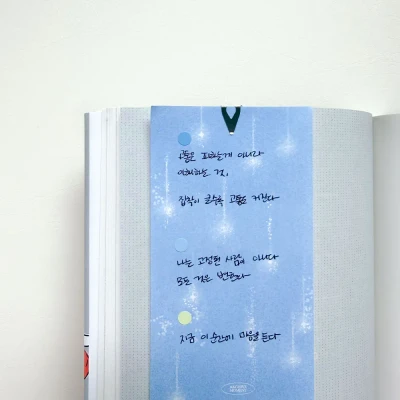 고통은 피하는게 아니라
이해하는 것,
집착이 클수록 고통도 커진다
나는 고정된 사람이 아니다
모든 것은 변한다
지금 이 순간에 마음을 둔다